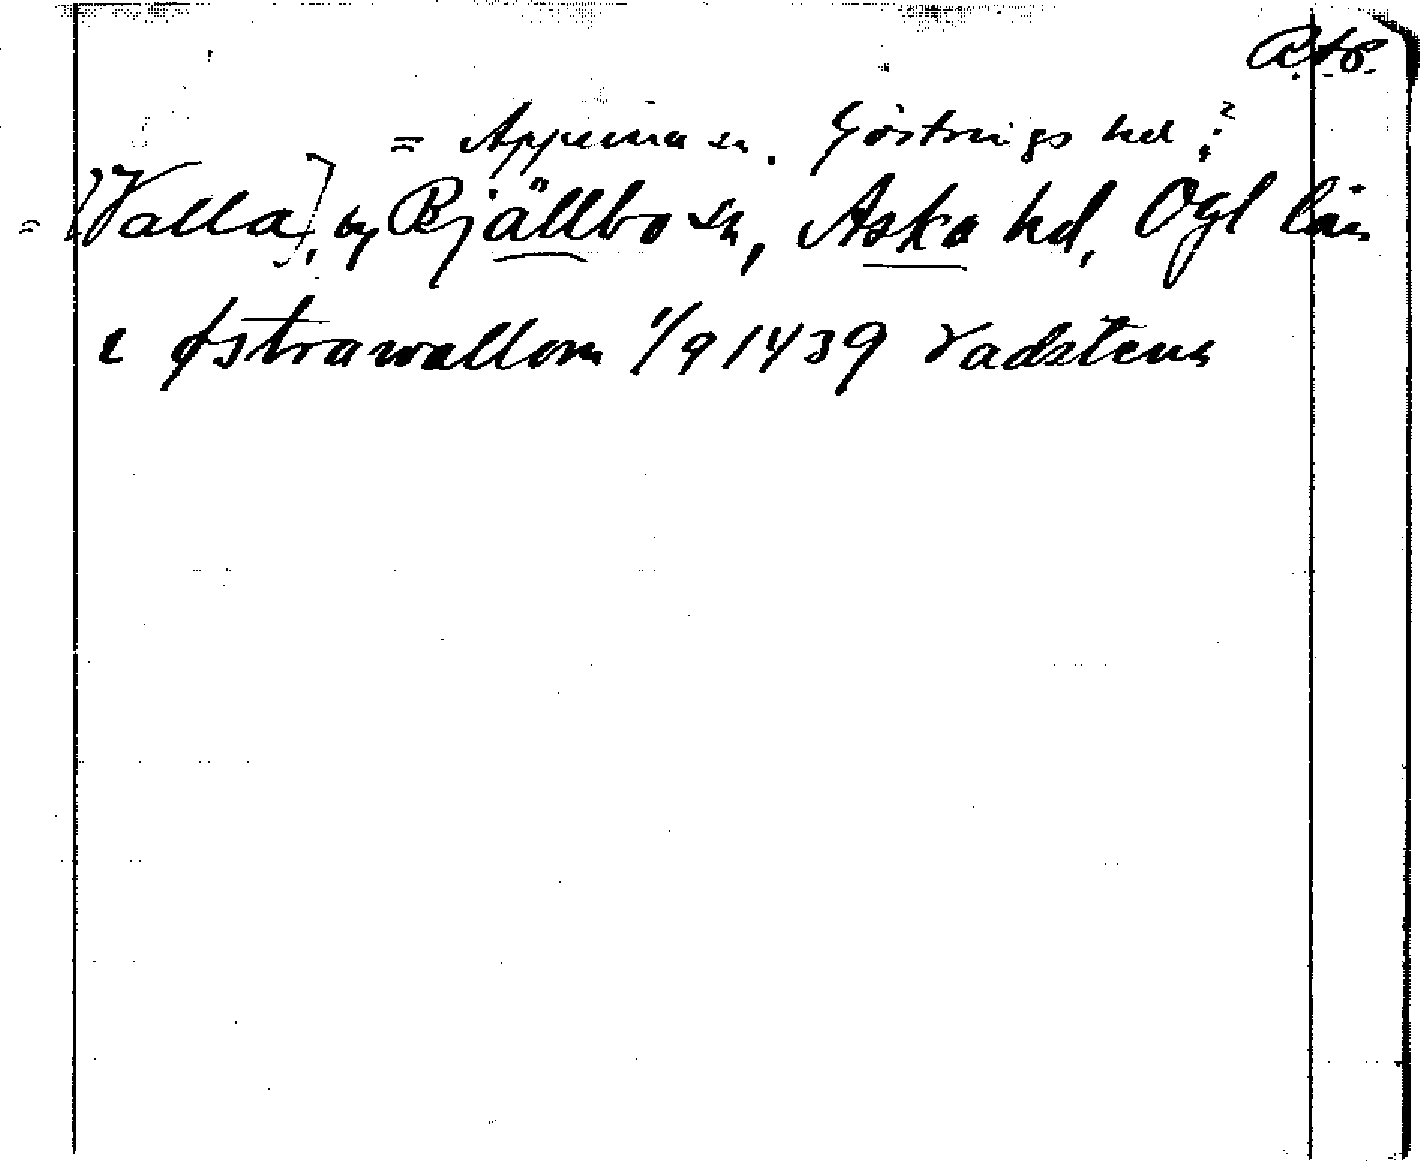 RAP.
= Appuna sn. Göstrings hd?
= [Valla], by Bjällbo sn, Aska hd, Ögl län
i Østrawallom 1/9 1439 Vadstena